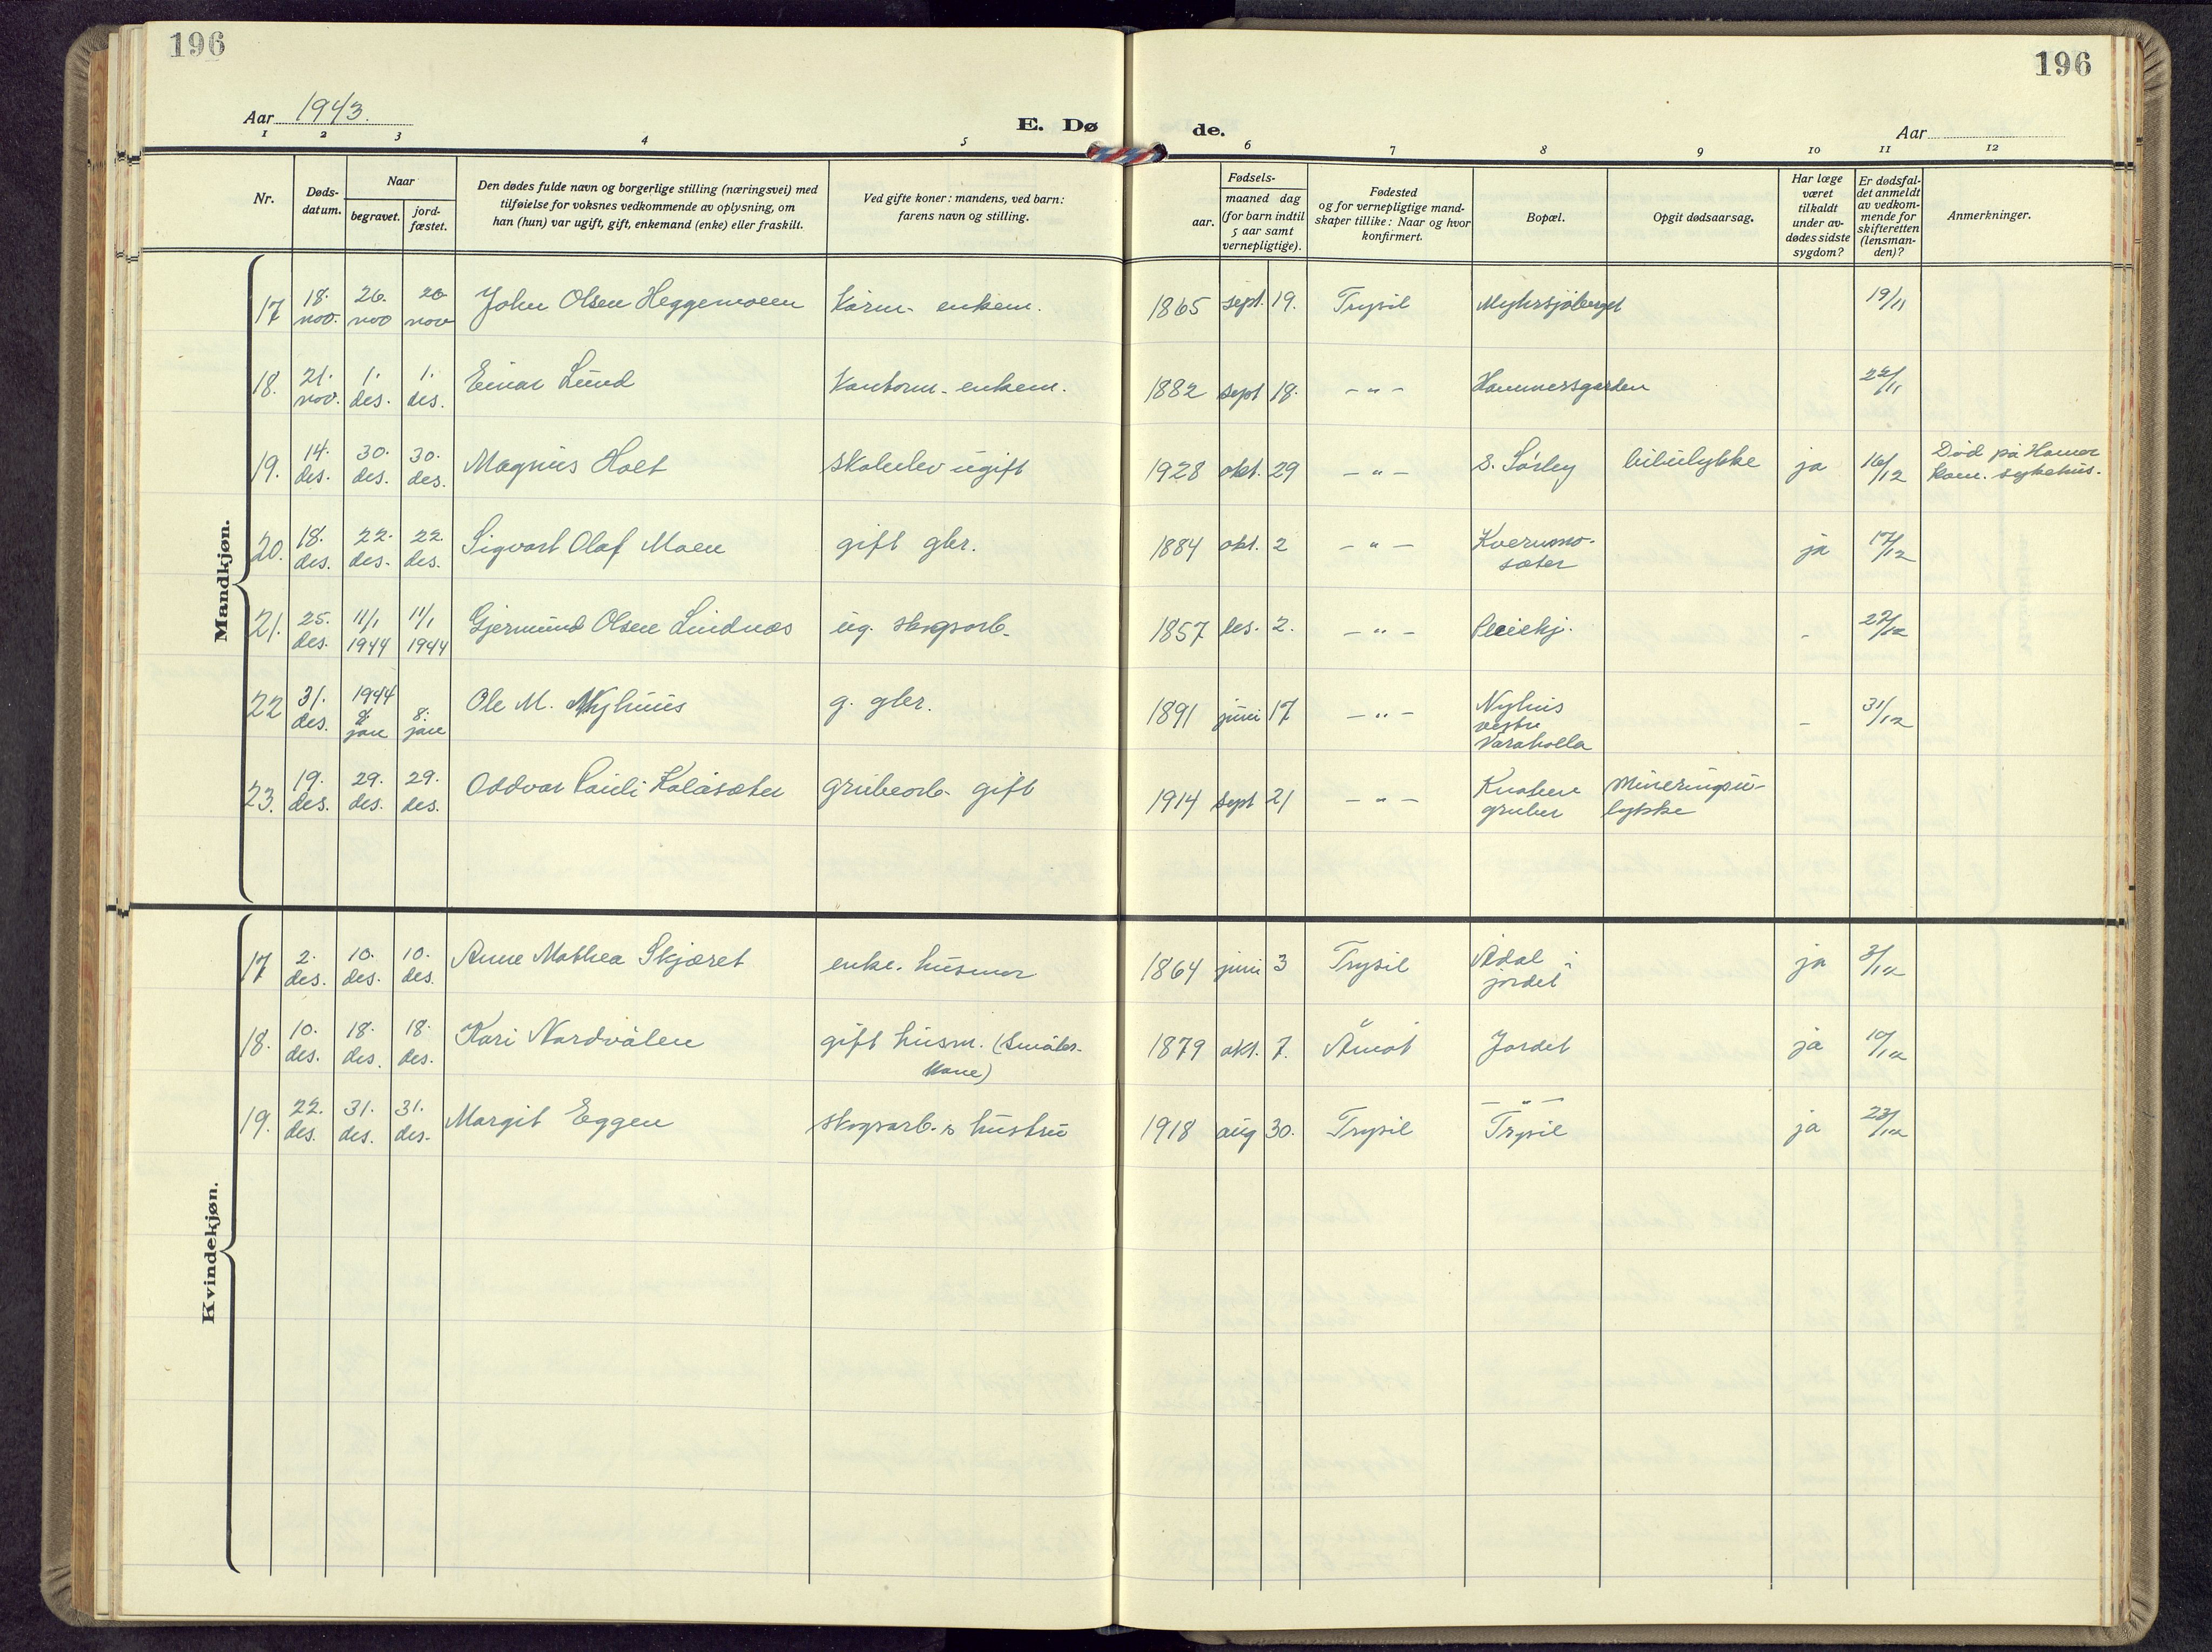 196
196
Aar 1943.
E. Dø
de.
Aar
1 2 3 4 5 6 7 8 9 10 11 12
Nr.
Døds-
datum.
Naar
begravet.
jord-
fæstet.
Den dødes fulde navn og borgerlige stilling (næringsvei) med
tilføielse for voksnes vedkommende av oplysning, om
han (hun) var ugift, gift, enkemand (enke) eller fraskilt.
Ved gifte koner: mandens, ved barn:
farens navn og stilling.
Fødsels-
aar.
maaned dag
(for barn indtil
5 aar samt
vernepligtige).
Fødested
og for vernepligtige mand-
skaper tillike: Naar og hvor
konfirmert.
Bopæl.
Opgit dødsaarsag.
Har læge
været
tilkaldt
under av-
dødes sidste
sygdom?
Er dødsfal-
det anmeldt
av vedkom-
mende for
skifteretten
(lensman-
den)?
Anmerkninger.
Mandkjøn.
17 18. nov. 26. nov 26 nov John Olsen Heggemoen Kårm- enkem. 1865 sept. 19. Trysil Myhrsjøberget 19/11
18. 21. nov. 1. des. 1. des. Einar Lund Kantorm- enkem. 1882 sept 18. -"- Hammersgarden 22/11
19. 14. des. 30. des. 30. des. Magnus Holt skoleelev ugift 1928 okt. 29 -"- S. Sørby bilulykke ja 16/12 Død på Hamar
kom. sykehus.
20. 18. des. 22. des. 22 des. Sigvart Olaf Moen gift gbr. 1884 okt. 2 -"- Kvernmo-
sæter ja 17/12
21. 25. des. 11/1 1944 11/1 1944 Gjermund Olsen Lindnæs ug. skogsarb. 1857 des. 2. -"- Pleiehj. - 27/12
22 31. des. 1944 8. jan 8. jan Ole M. Nyhuus g. gbr. 1891 juni 17 -"- Nyhus
vestre
Varaholla - 31/12
23. 19. des. 29. des. 29. des. Oddvar Pauli Kolåsæter grubearb- gift 1914 sept 21 -"- Knaben
gruber Mineringsu-
lykke
Kvindekjøn.
17 2. des. 10. des. 10. des. Anne Mathea Skjæret enke. husmor 1864 juni 3 Trysil Ådal i
jordet ja 3/12
18. 10. des. 18. des. 18. des. Kari Nordvålen gift husm. (Småbr.
kone) 1879 okt. 7. Åmot Jordet ja 10/12
19. 22. des. 31. des. 31. des. Margit Eggen skogsarb.s hustru 1918 aug 30. Trysil -"-
Trysil ja 23/12